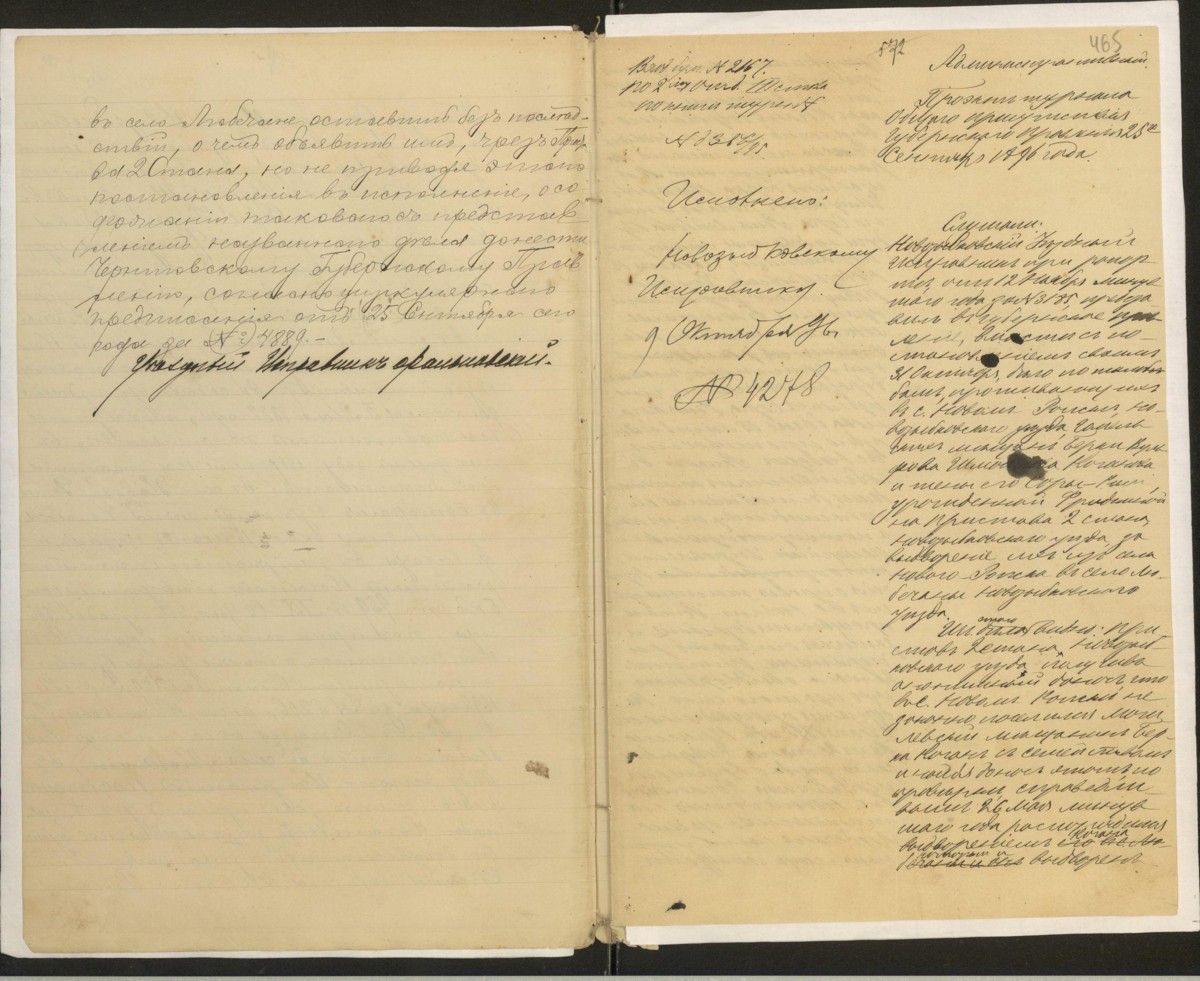 въ село Любечане, оставить безъ послѣд-
ствій, о чемъ объявить имъ, чрезъ Прис-
ва 2 Стана, но не приводя этого
постановленія въ исполненіе, о со
держаніи таковаго съ представ
леніемъ названнаго дѣла донести
Черниговскому Губернскому Прав
ленію, согласно циркулярнаго
предписанія отъ 25 Октября сего
года за № 4889.—
Уѣздный Исправникъ
572
465
Вход. бум. № 2167.
по 2 му Отд. Стола
по книгѣ журн. №
Исполнено:
Новозыбковскому
Исправнику.
9 Октября 96 г.
№ 4278
Административный.
Проэктъ журнала
Общаго Присутствія
Губернскаго Правленія 25го
Сентября 1896 года.
Слушали:
Новозыбковскій Уѣздный
Исправникъ при рапор
тѣ отъ 12 Ноября минув
шаго года за № 3185, предста
вилъ въ Губернское Прав
леніе, вмѣстѣ съ по-
становленіемъ своимъ
31 Октября, дѣло по жало
бамъ, проживающихъ
въ с. Новомъ Ропскѣ Но-
возыбковскаго уѣзда
мѣщанъ Берки
Когана
и жены его Соры-
урожденной
на Пристава 2 стана,
Новозыбковскаго уѣзда, за
выдвореніе ихъ изъ села
Новаго-Ропска въ село Лю-
бечаны Новозыбковскаго
уѣзда.
Изъ дѣла этого видно: При-
ставъ 2 стана, Новозыб-
ковскаго уѣзда, получивъ
анонимный доносъ что
въ с. Новомъ Ропскѣ не
законно поселился Моги
левскій мѣщанинъ Бер-
ка Коганъ съ семействомъ
и найдя доносъ этотъ по
провѣркѣ, справедли
вымъ 26 Мая минув
шаго года распорядился
выдвореніемъ Когана
который и выдворенъ